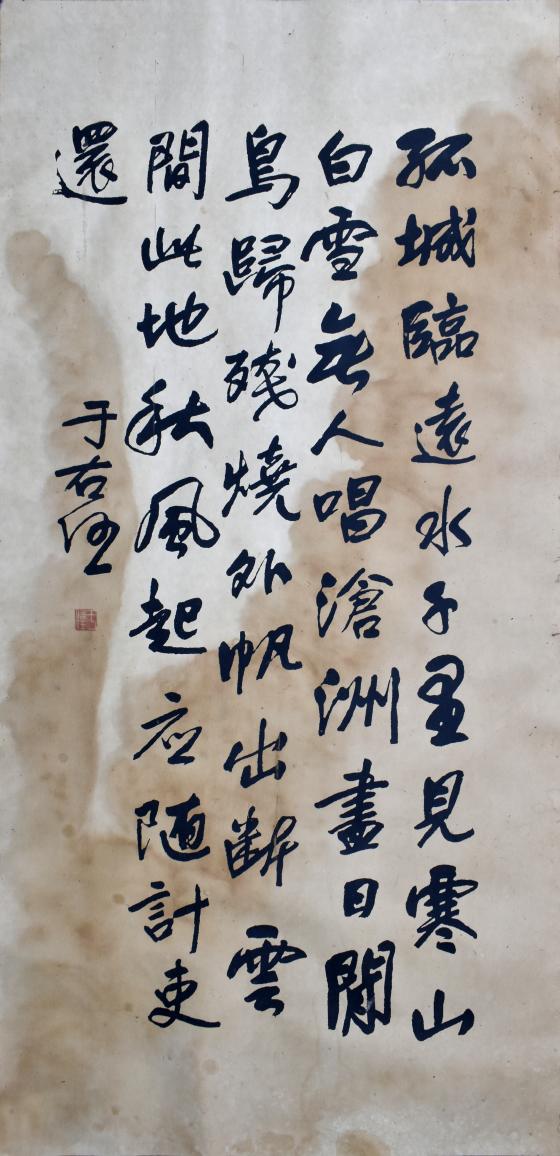 孤城臨遠水千里見寒山
白雪無人唱滄洲晝日閑
鳥歸殘燒外帆出斷雲
間此地秋風起应随計吏
還
于右任